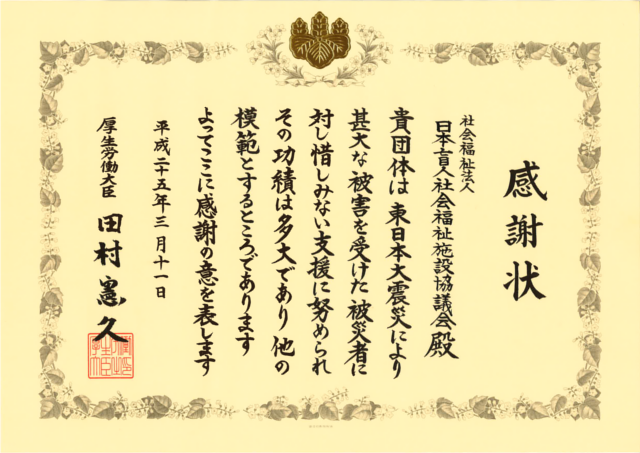 感謝状
社会福祉法人
日本盲人社会福祉施設協議会殿
貴団体は東日本大震災により
甚大な被害を受けた被災者に
対し惜しみない支援に努められ
その功績は多大であり他の
模範とするところであります
よってここに感謝の意を表します
平成二十五年三月十一日
厚生労働大臣 田村憲久